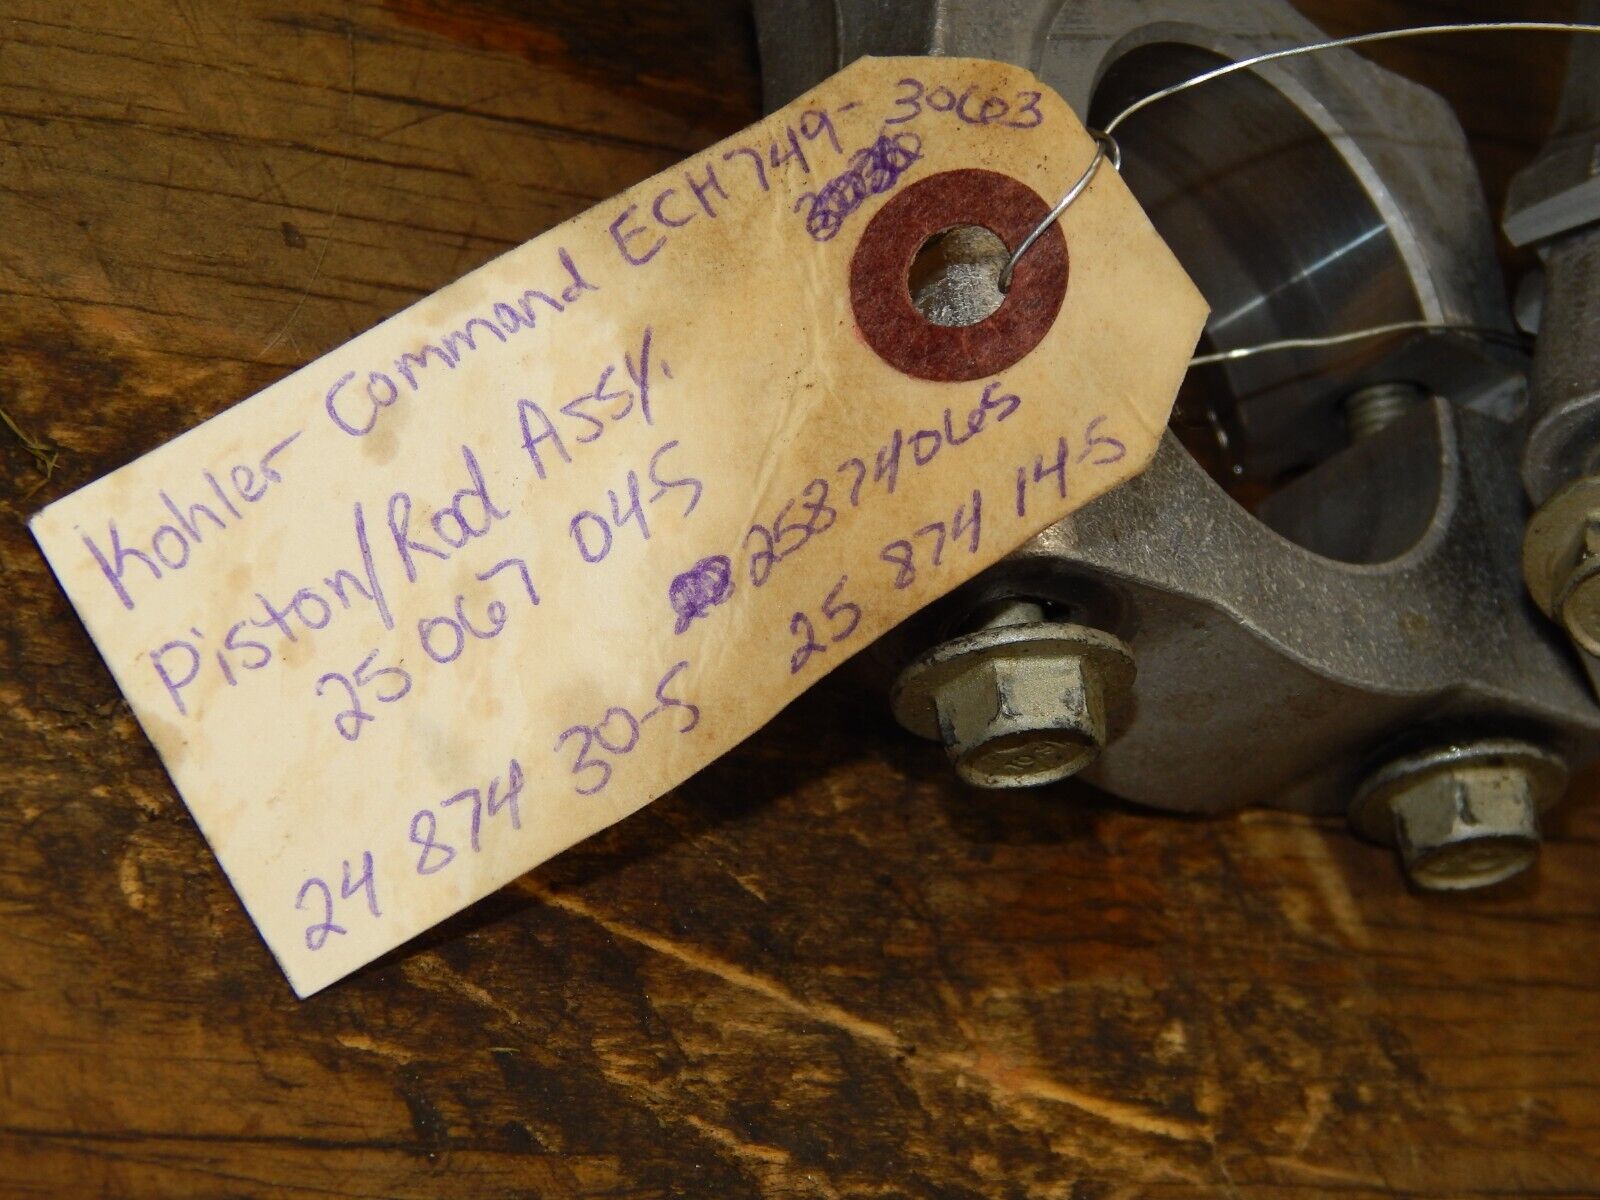 Kohler Command ECH749-3063
Piston/Rod Assy.
25 067 04-S
25 874 06S
24 874 30-S
25 874 14-S